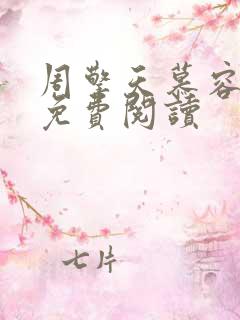 周擎天慕容
免費閱讀
七片